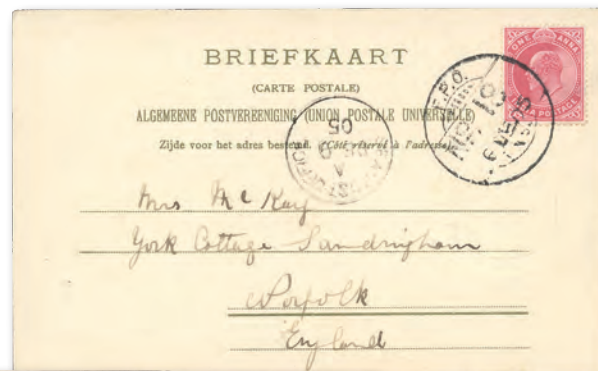 BRIEFKAART
(CARTE POSTALE)
ALGEMEENE POSTVEREENIGING (UNION POSTALE UNIVERSELLE)
Zijde voor het adres bestemd. (Côté réservé à l'adresse)
ONE ANNA
POSTAGE
F.P.O.
No. 19
05
A
Mrs Mc Kay
York Cottage Sandringham
Norfolk
England